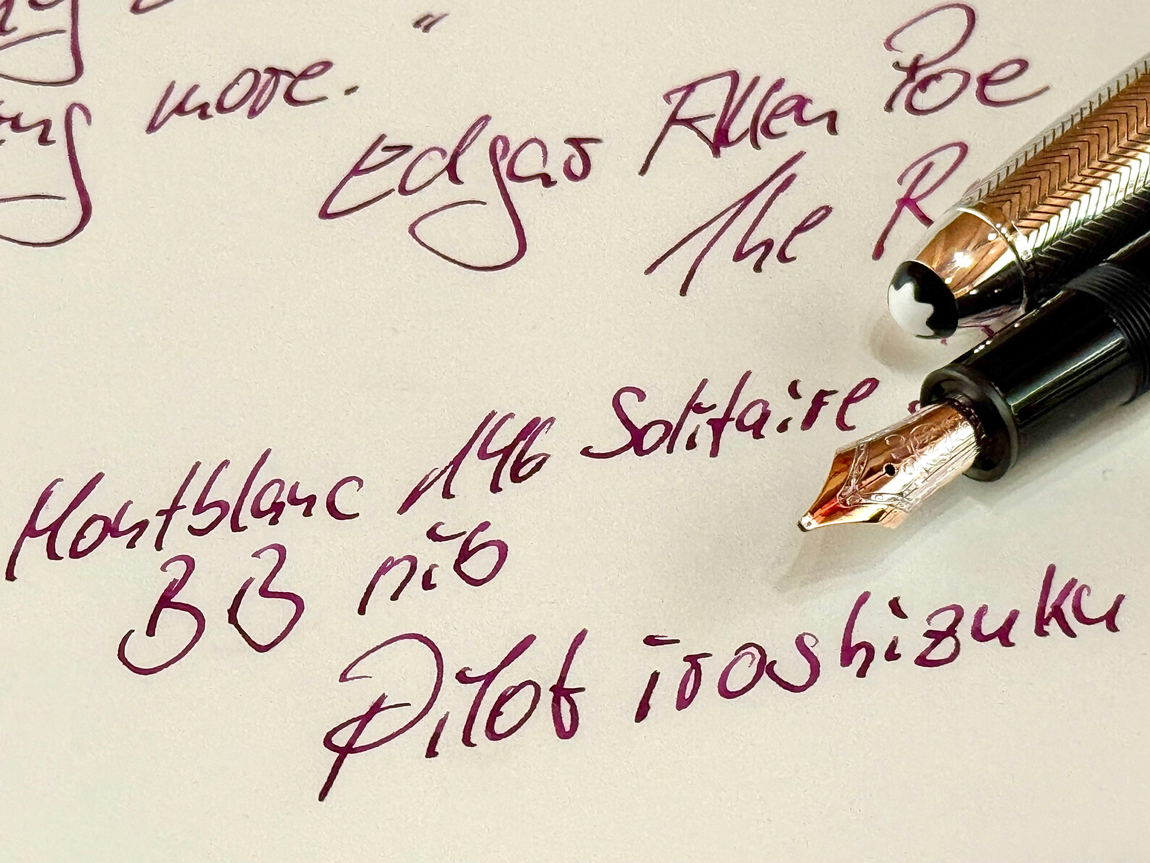 more."
Edgar Allen Poe
The R
Montblanc 146 Solitaire
BB nib
Pilot iroshizuku